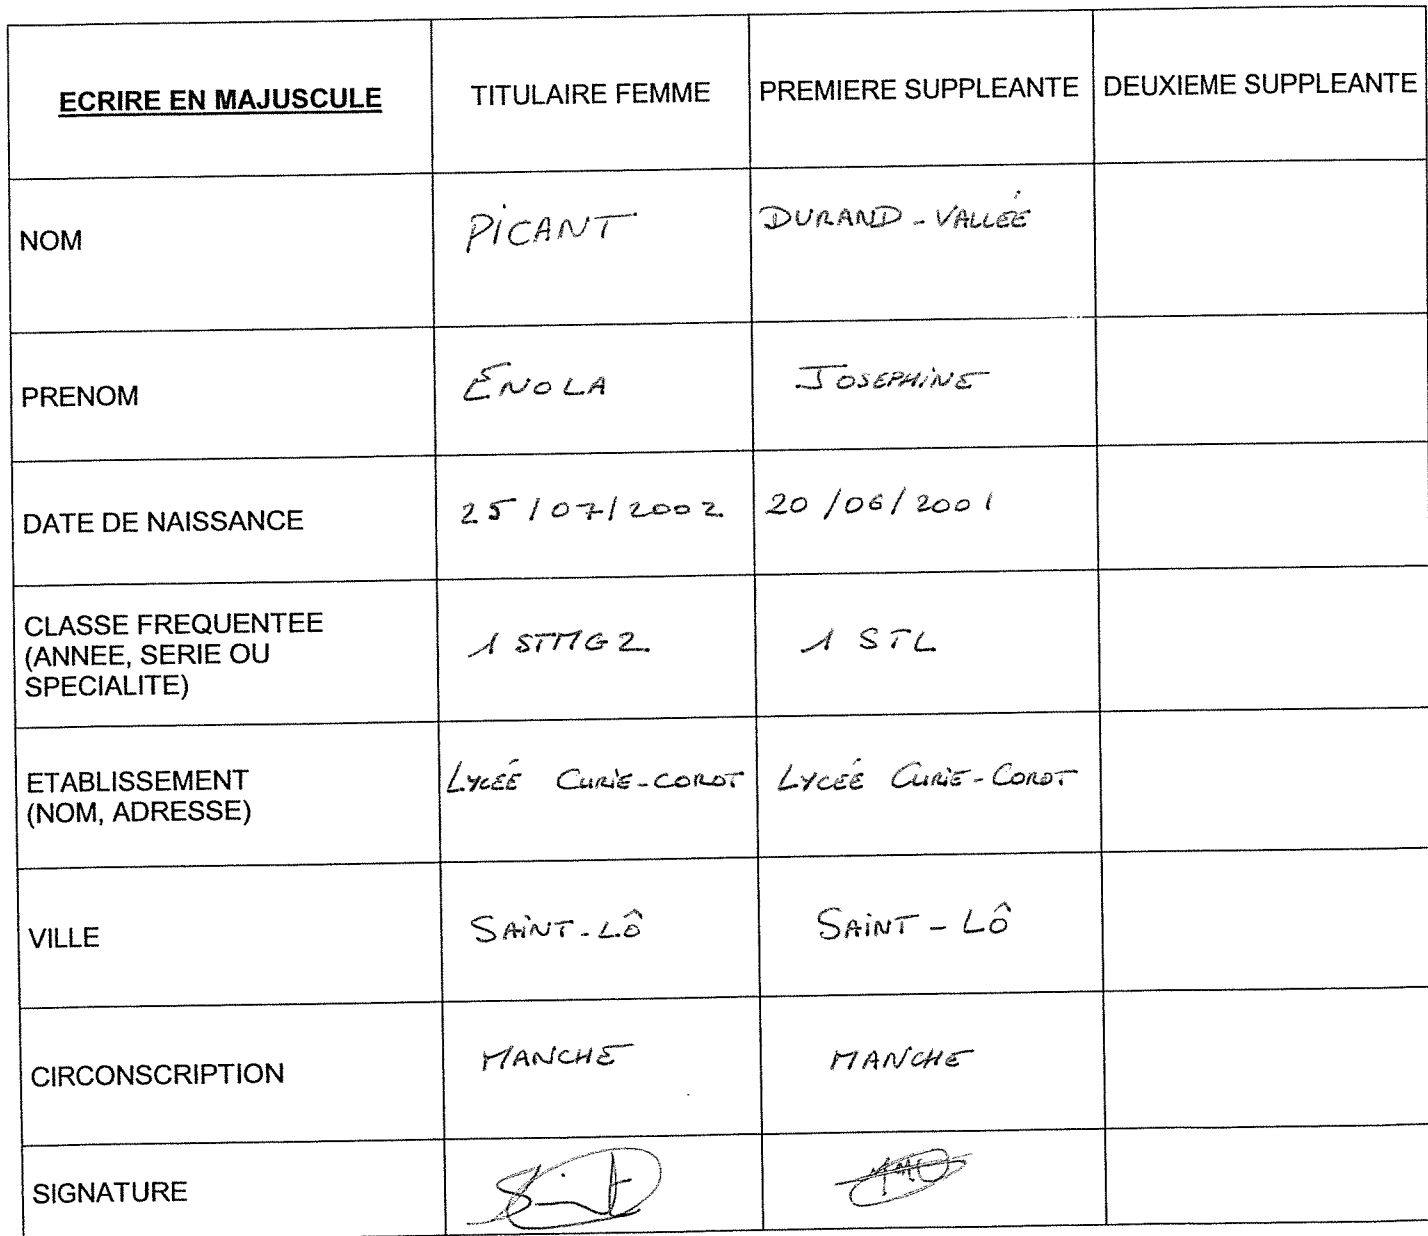 ECRIRE EN MAJUSCULE TITULAIRE FEMME PREMIERE SUPPLEANTE DEUXIEME SUPPLEANTE
NOM PICANT DURAND-VALLÉE
PRENOM ÉNOLA JOSEPHINE
DATE DE NAISSANCE 25/07/2002 20/06/2001
CLASSE FREQUENTEE
(ANNEE, SERIE OU
SPECIALITE) 1 STMG2 1 STL
ETABLISSEMENT
(NOM, ADRESSE) LYCÉE CURIE-COROT LYCÉE CURIE-COROT
VILLE SAINT-LÔ SAINT-LÔ
CIRCONSCRIPTION MANCHE MANCHE
SIGNATURE